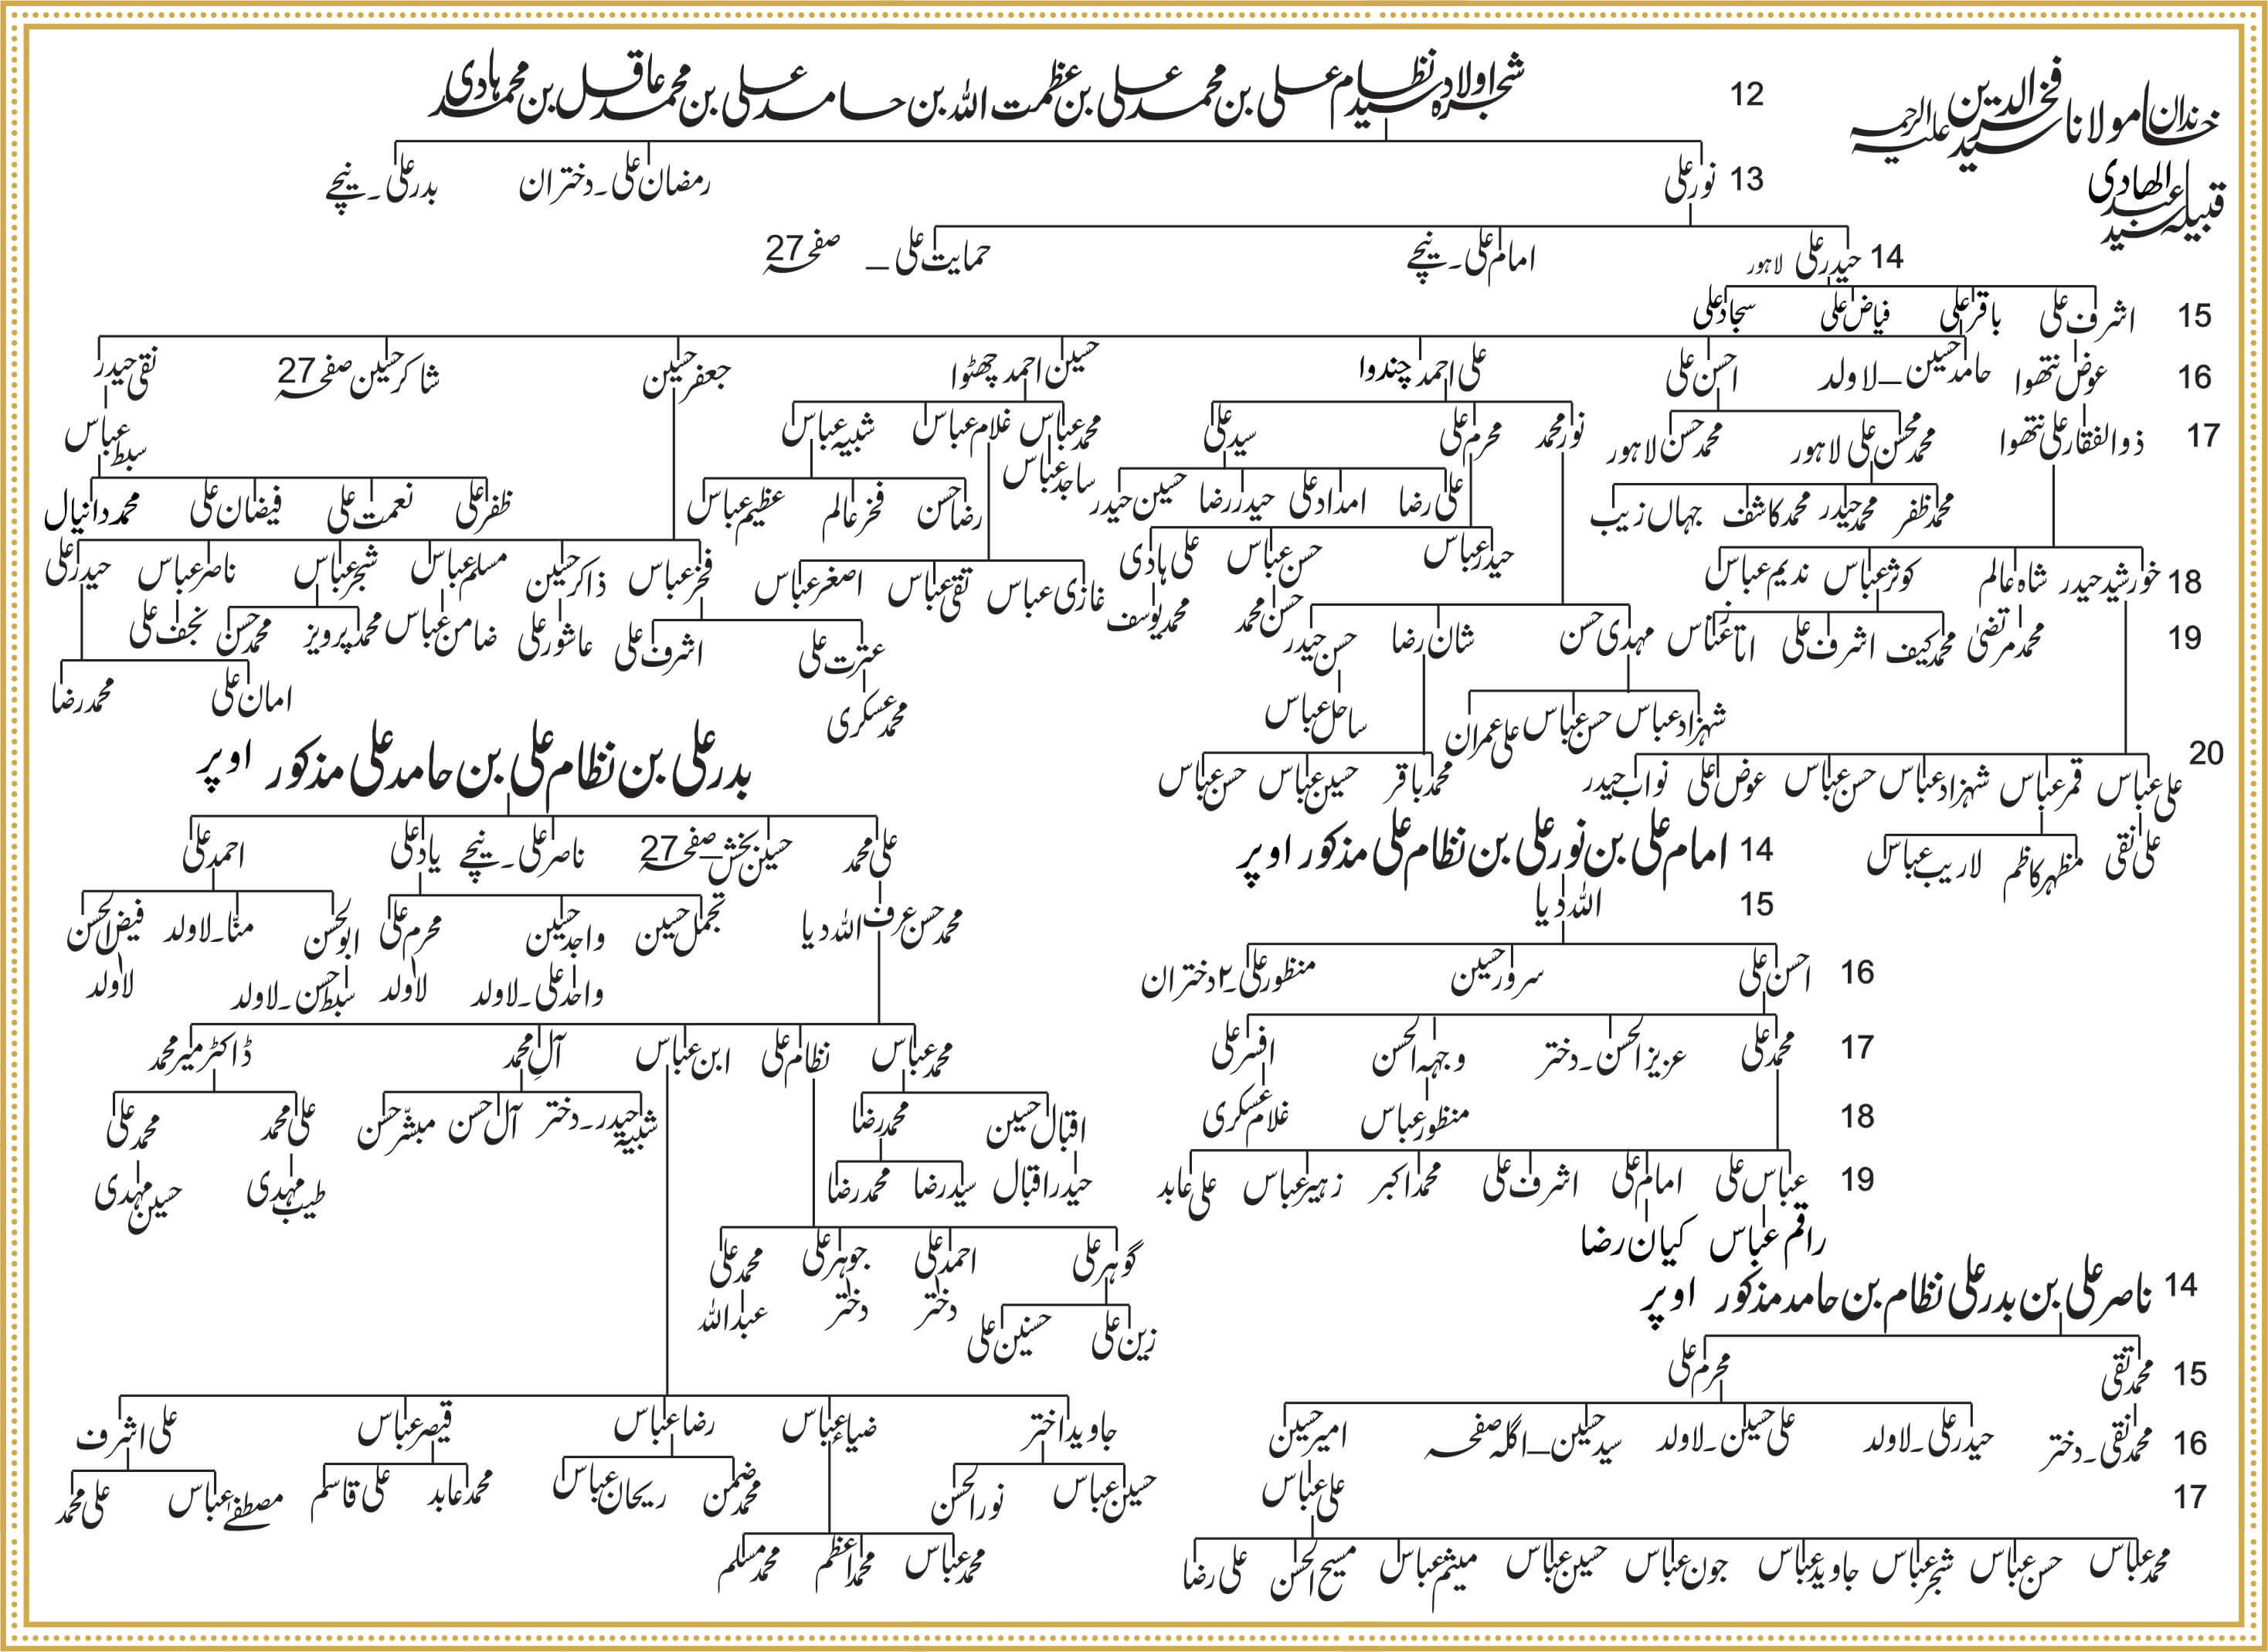 خاندان مولانا سید فخرالدین علیہ الرحمہ
قبیلہ سید عبدالھادی
12 شجرہ اولاد سید نظام علی بن محمد علی بن عظمت اللہ بن حامد علی بن محمد عاقل بن محمد ہادی
13 نور علی رمضان علی۔دختران بدر علی۔نیچے
14 حیدر علی لاہور امام علی۔نیچے حمایت علی _ صفحہ 27
15 اشرف علی باقر علی فیاض علی سجاد علی
16 عوض نتھوا حامد حسین_لاولد احسن علی علی احمد چندوا حسین احمد چھٹوا جعفر حسین شاکر حسین صفحہ 27 نقی حیدر
17 ذوالفقار علی نتھوا محمد محسن علی لاہور محمد حسن لاہور نور محمد محرم علی سید علی محمد عباس غلام عباس شبیہ عباس سبط عباس
ساجد عباس
محمد ظفر محمد حیدر محمد کاشف جہاں زیب علی رضا امداد علی حیدر رضا حسین حیدر رضا حسن فخر عالم عظیم عباس ظفر علی نعمت علی فیضان علی محمد دانیال
18 خورشید حیدر شاہ عالم کوثر عباس ندیم عباس حیدر عباس حسن عباس علی ہادی غازی عباس تقی عباس اصغر عباس فخر عباس ذاکر حسین مسلم عباس شجر عباس ناصر عباس حیدر علی
19 محمد مرتضیٰ محمد کیف اشرف علی مہدی حسن شان رضا حسن حیدر حسن محمد محمد یوسف عترت علی اشرف علی عاشور علی ضامن عباس محمد پرویز محمد حسن نجف علی
شہزاد عباس حسن عباس علی عمران ساحل عباس محمد عسکری امان علی محمد رضا
20 علی عباس قمر عباس شہزاد عباس حسن عباس عوض علی نواب حیدر محمد باقر حسین عباس حسن عباس
علی نقی مظہر کاظم لاریب عباس
بدر علی بن نظام علی بن حامد علی مذکور اوپر
علی محمد حسین بخش_صفحہ 27 ناصر علی۔نیچے یاد علی احمد علی
محمد حسن عرف اللہ دیا تجمل حسین واجد حسین محرم علی ابوالحسن منّا۔لاولد فیض الحسن
واجد علی۔لاولد لاولد سبط حسن۔لاولد لاولد
محمد عباس نظام علی ابن عباس آلِ محمد ڈاکٹر میر محمد
اقبال حسین محمد رضا شبیہ حیدر۔دختر آل حسن مبشّر حسن علی محمد محمد علی
حیدر اقبال سید رضا محمد رضا طیب مہدی حسین مہدی
گوہر علی احمد علی جوہر علی محمد علی
زین علی حسنین علی دختر دختر عبداللہ
جاوید اختر ضیاء عباس رضا عباس قیصر عباس علی اشرف
حسین عباس نور الحسن محمد ضمن ریحان عباس محمد عابد علی قاسم مصطفےٰ عباس علی محمد
محمد عباس محمد اعظم محمد مسلم
14 امام علی بن نور علی بن نظام علی مذکور اوپر
15 اللہ دیا
16 احسن علی سرور حسین منظور علی۔۲ دختران
17 محمد علی عزیز الحسن۔دختر وجہہ الحسن افسر علی
18 منظور عباس غلام عسکری
19 عباس علی امام علی اشرف علی محمد اکبر زہیر عباس علی عابد
راقم عباس کیان رضا
14 ناصر علی بن بدر علی نظام بن حامد مذکور اوپر
15 محمد تقی محرم علی
16 محمد نقی۔دختر حیدر علی۔لاولد علی حسین۔لاولد سید حسین_اگلہ صفحہ امیر حسین
17 علی عباس
محمد عباس حسن عباس شجر عباس جاوید عباس جون عباس حسین عباس میثم عباس مسیح الحسن علی رضا